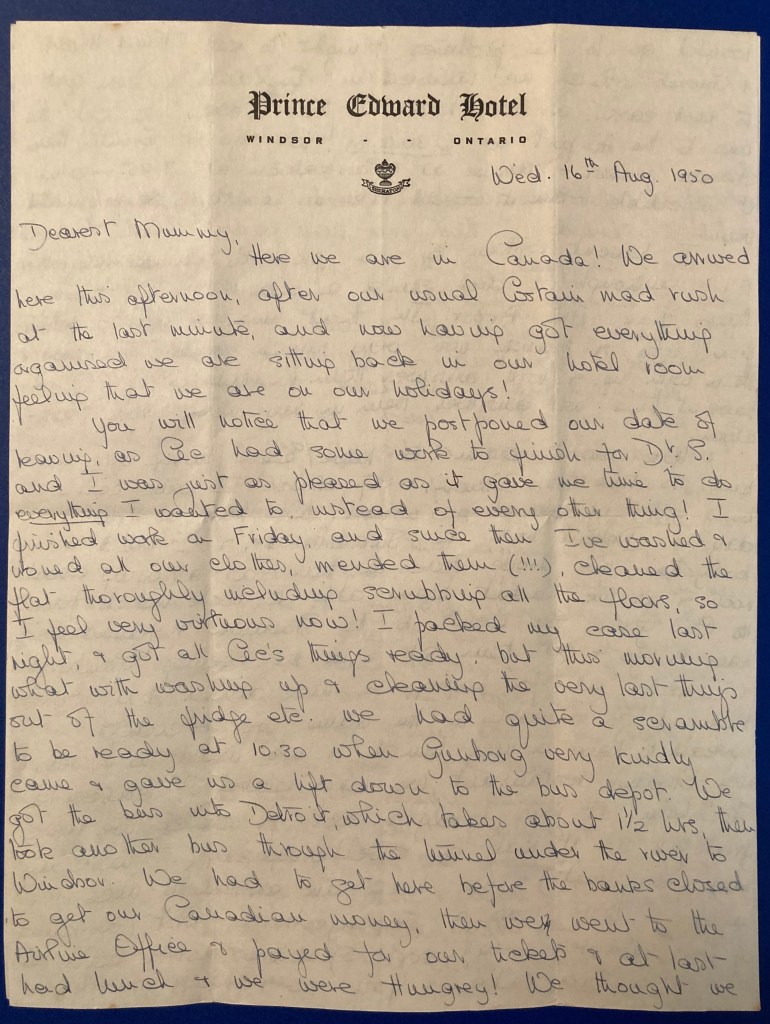 Prince Edward Hotel
WINDSOR - - ONTARIO
Wed. 16th Aug. 1950
Dearest Mummy,
Here we are in Canada! We arrived
here this afternoon, after our usual Costain mad rush
at the last minute, and now having got everything
organised we are sitting back in our hotel room
feeling that we are on our holidays!
You will notice that we postponed our date of
leaving, as Cec had some work to finish for Dr. S.
and I was just as pleased as it gave me time to do
everything I wanted to, instead of every other thing! I
finished work on Friday, and since then I've washed &
ironed all our clothes, mended them (!!!), cleaned the
flat thoroughly including scrubbing all the floors, so
I feel very virtuous now! I packed my case last
night, & got all Cec's things ready, but this morning
what with washing up & cleaning the very last things
out of the fridge etc. we had quite a scramble
to be ready at 10.30 when Gunborg very kindly
came & gave us a lift down to the bus depot. We
got the bus into Detroit, which takes about 1½ hrs, then
took another bus through the tunnel under the river to
Windsor. We had to get here before the banks closed
to get our Canadian money, then we went to the
Airline Office & payed for our tickets & at last
had lunch & we were Hungrey! We thought we